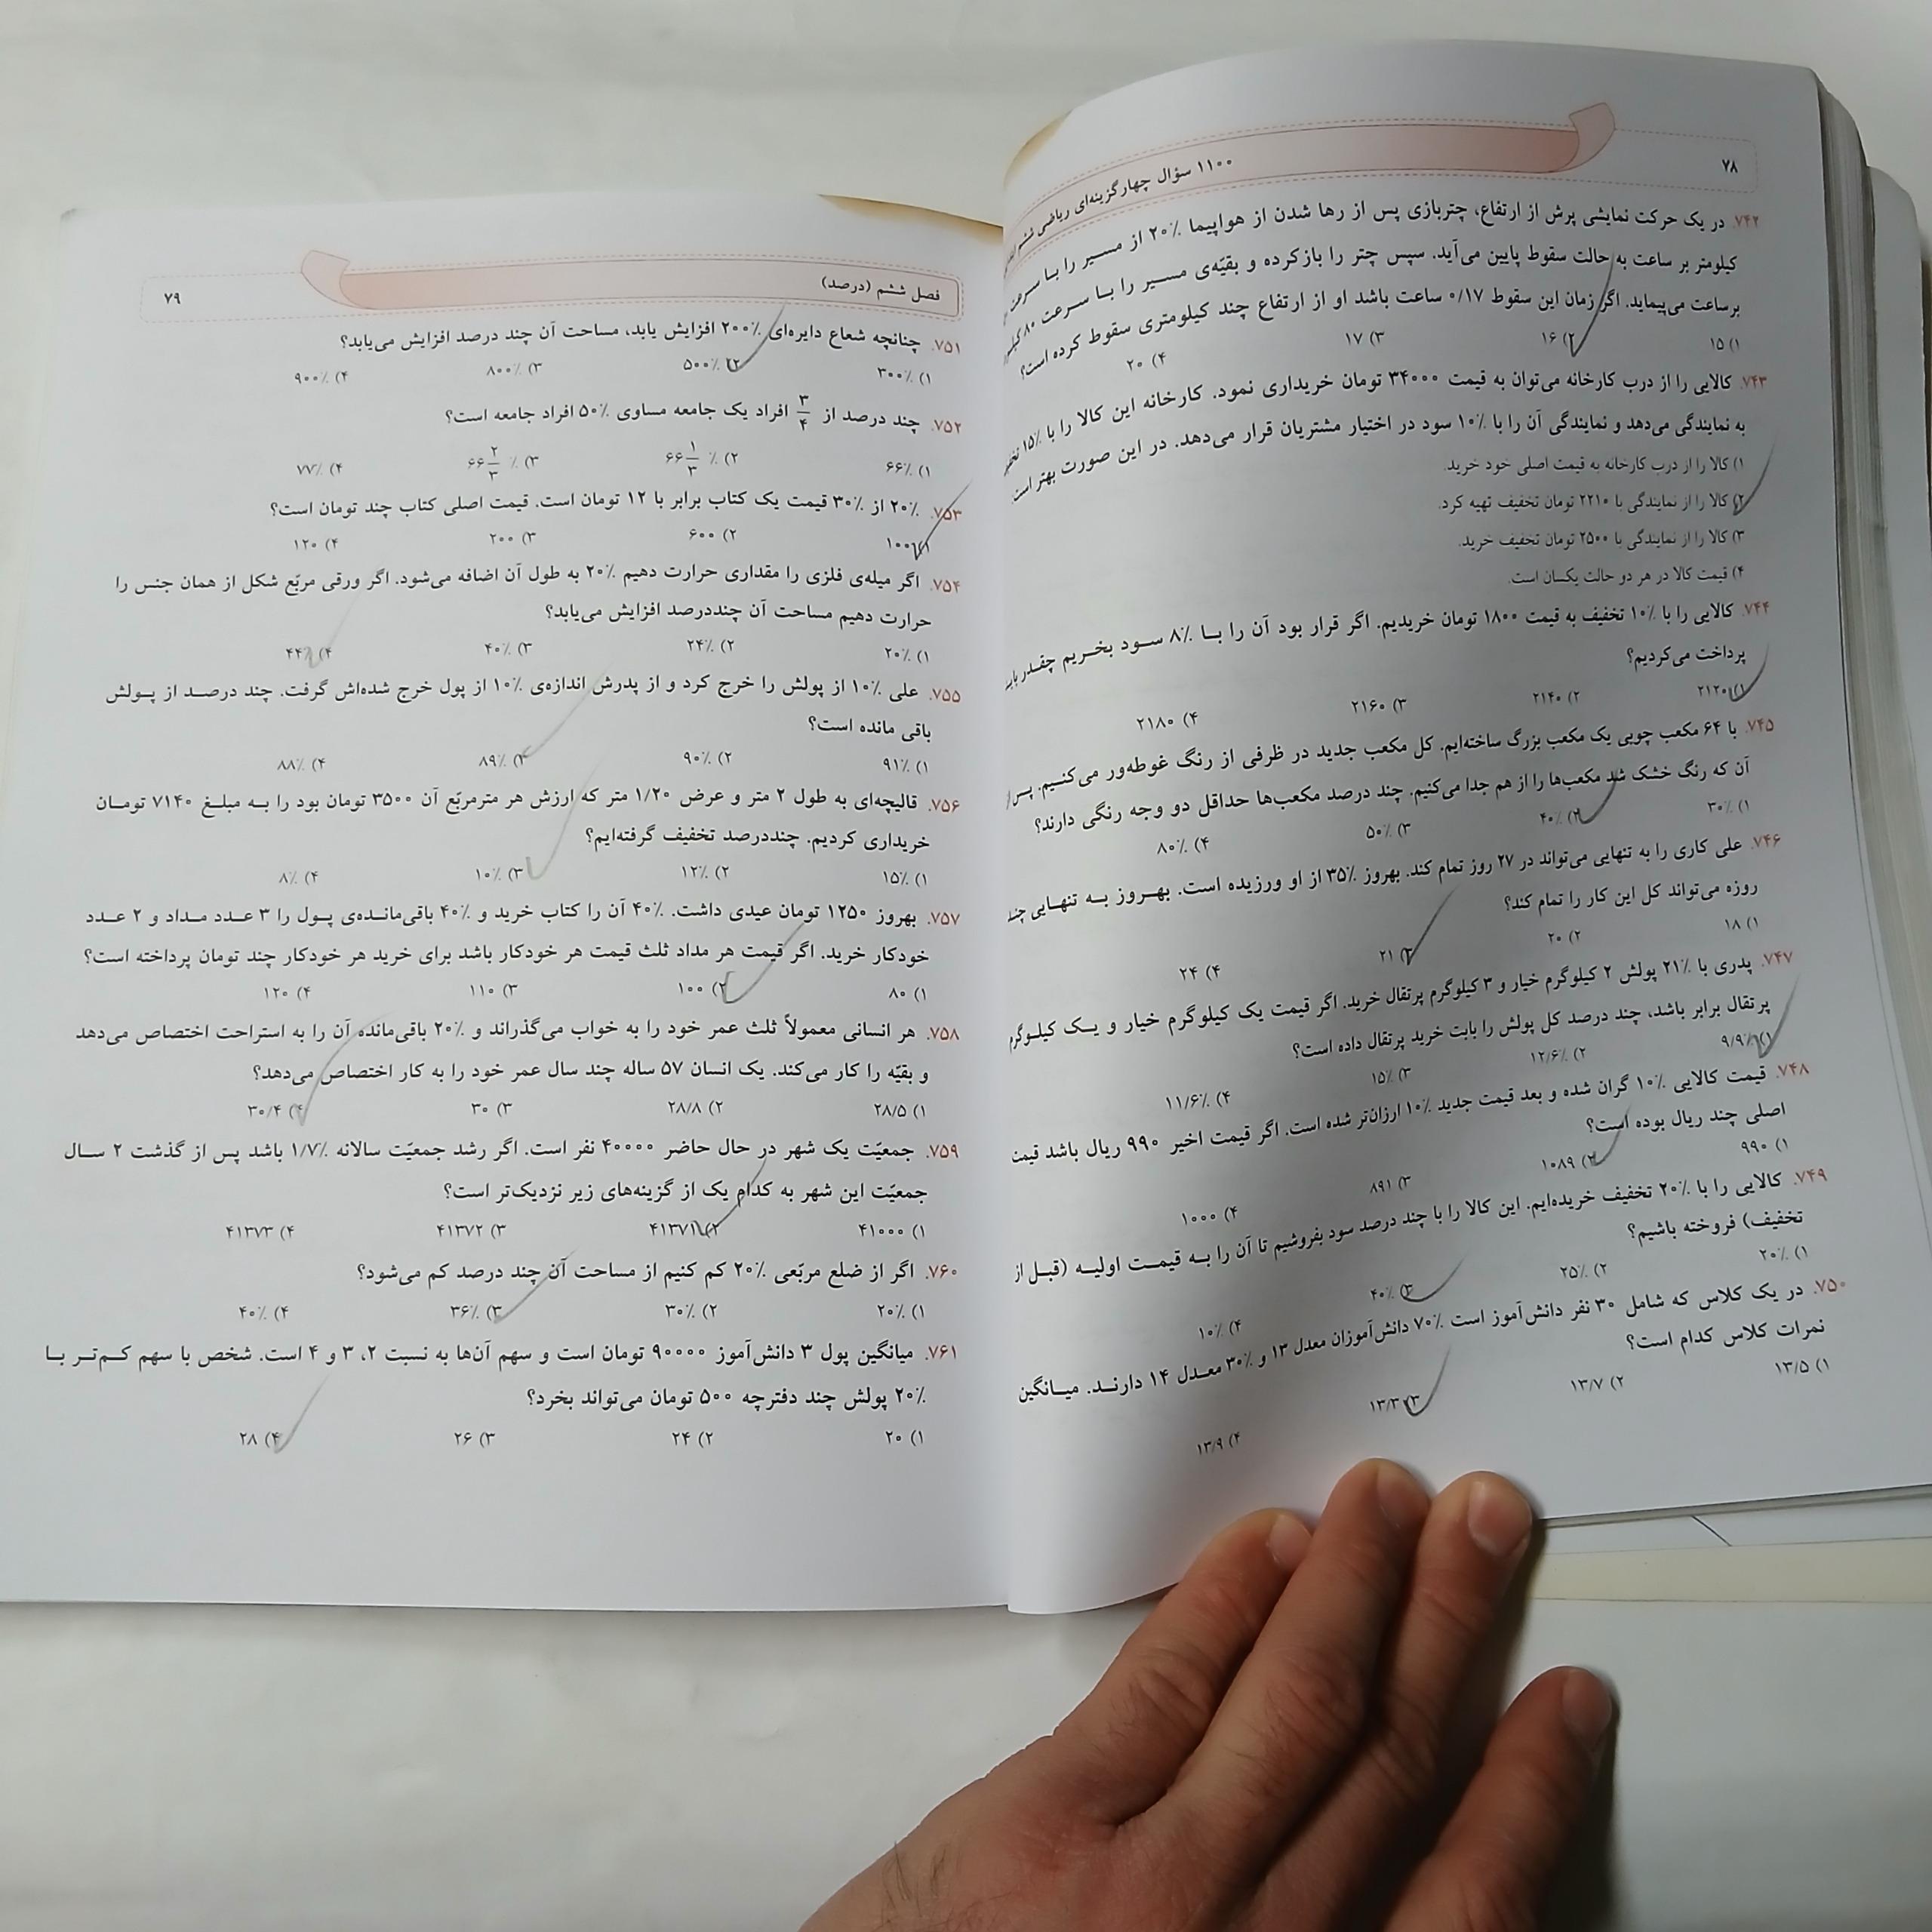 ۷۸
۱۱۰۰ سؤال چهارگزینه‌ای ریاضی ششم
۷۴۲. در یک حرکت نمایشی پرش از ارتفاع، چتربازی پس از رها شدن از هواپیما ۲۰٪ از مسیر را با سرعت
کیلومتر بر ساعت به حالت سقوط پایین می‌آید. سپس چتر را بازکرده و بقیّه‌ی مسیر را بـا سـرعت ۸۰
برساعت می‌پیماید. اگر زمان این سقوط ۰/۱۷ ساعت باشد او از ارتفاع چند کیلومتری سقوط کرده است؟
۱) ۱۵ ۲) ۱۶ ۳) ۱۷ ۴) ۲۰
۷۴۳. کالایی را از درب کارخانه می‌توان به قیمت ۳۴۰۰۰ تومان خریداری نمود. کارخانه این کالا را با ۱۵٪
به نمایندگی می‌دهد و نمایندگی آن را با ۱۰٪ سود در اختیار مشتریان قرار می‌دهد. در این صورت بهتر است
۱) کالا را از درب کارخانه به قیمت اصلی خود خرید.
۲) کالا را از نمایندگی با ۲۲۱۰ تومان تخفیف تهیه کرد.
۳) کالا را از نمایندگی با ۲۵۰۰ تومان تخفیف خرید.
۴) قیمت کالا در هر دو حالت یکسان است.
۷۴۴. کالایی را با ۱۰٪ تخفیف به قیمت ۱۸۰۰ تومان خریدیم. اگر قرار بود آن را بـا ۸٪ سـود بخـریم چقـدر
پرداخت می‌کردیم؟
۱) ۲۱۲۰ ۲) ۲۱۴۰ ۳) ۲۱۶۰ ۴) ۲۱۸۰
۷۴۵. با ۶۴ مکعب چوبی یک مکعب بزرگ ساخته‌ایم. کل مکعب جدید در ظرفی از رنگ غوطه‌ور می‌کنـیم. پـس
آن که رنگ خشک شد مکعب‌ها را از هم جدا می‌کنیم. چند درصد مکعب‌ها حداقل دو وجه رنگی دارند؟
۱) ۳۰٪ ۲) ۴۰٪ ۳) ۵۰٪ ۴) ۸۰٪
۷۴۶. علی کاری را به تنهایی می‌تواند در ۲۷ روز تمام کند. بهروز ۳۵٪ از او ورزیده است. بهـروز بـه تنهـایی
روزه می‌تواند کل این کار را تمام کند؟
۱) ۱۸ ۲) ۲۰ ۳) ۲۱ ۴) ۲۴
۷۴۷. پدری با ۲۱٪ پولش ۲ کیلوگرم خیار و ۳ کیلوگرم پرتقال خرید. اگر قیمت یک کیلوگرم خیار و یـک کیلـوگرم
پرتقال برابر باشد، چند درصد کل پولش را بابت خرید پرتقال داده است؟
۱) ۹/۹٪ ۲) ۱۲/۶٪ ۳) ۱۵٪ ۴) ۱۱/۶٪
۷۴۸. قیمت کالایی ۱۰٪ گران شده و بعد قیمت جدید ۱۰٪ ارزان‌تر شده است. اگر قیمت اخیر ۹۹۰ ریال باشد قیمت
اصلی چند ریال بوده است؟
۱) ۹۹۰ ۲) ۱۰۸۹ ۳) ۸۹۱ ۴) ۱۰۰۰
۷۴۹. کالایی را با ۲۰٪ تخفیف خریده‌ایم. این کالا را با چند درصد سود بفروشیم تا آن را بـه قیمـت اولیـه (قبـل از
تخفیف) فروخته باشیم؟
۱) ۲۰٪ ۲) ۲۵٪ ۳) ۴۰٪ ۴) ۱۰٪
۷۵۰. در یک کلاس که شامل ۳۰ نفر دانش‌آموز است ۷۰٪ دانش‌آموزان معدل ۱۳ و ۳۰٪ معـدل ۱۴ دارنـد. میـانگین
نمرات کلاس کدام است؟
۱) ۱۳/۵ ۲) ۱۳/۷ ۳) ۱۳/۳ ۴) ۱۳/۹
فصل ششم (درصد)
۷۹
۷۵۱. چنانچه شعاع دایره‌ای ۲۰۰٪ افزایش یابد، مساحت آن چند درصد افزایش می‌یابد؟
۱) ۳۰۰٪ ۲) ۵۰۰٪ ۳) ۸۰۰٪ ۴) ۹۰۰٪
۷۵۲. چند درصد از ۳/۴ افراد یک جامعه مساوی ۵۰٪ افراد جامعه است؟
۱) ۶۶٪ ۲) ۶۶ ۱/۳ ٪ ۳) ۶۶ ۲/۳ ٪ ۴) ۷۷٪
۷۵۳. ۲۰٪ از ۳۰٪ قیمت یک کتاب برابر با ۱۲ تومان است. قیمت اصلی کتاب چند تومان است؟
۱) ۱۰۰ ۲) ۶۰۰ ۳) ۲۰۰ ۴) ۱۲۰
۷۵۴. اگر میله‌ی فلزی را مقداری حرارت دهیم ۲۰٪ به طول آن اضافه می‌شود. اگر ورقی مربّع شکل از همان جنس را
حرارت دهیم مساحت آن چنددرصد افزایش می‌یابد؟
۱) ۲۰٪ ۲) ۲۴٪ ۳) ۴۰٪ ۴) ۴۴٪
۷۵۵. علی ۱۰٪ از پولش را خرج کرد و از پدرش اندازه‌ی ۱۰٪ از پول خرج شده‌اش گرفت. چند درصـد از پـولش
باقی مانده است؟
۱) ۹۱٪ ۲) ۹۰٪ ۳) ۸۹٪ ۴) ۸۸٪
۷۵۶. قالیچه‌ای به طول ۲ متر و عرض ۱/۲۰ متر که ارزش هر مترمربّع آن ۳۵۰۰ تومان بود را بـه مبلـغ ۷۱۴۰ تومـان
خریداری کردیم. چنددرصد تخفیف گرفته‌ایم؟
۱) ۱۵٪ ۲) ۱۲٪ ۳) ۱۰٪ ۴) ۸٪
۷۵۷. بهروز ۱۲۵۰ تومان عیدی داشت. ۴۰٪ آن را کتاب خرید و ۴۰٪ باقی‌مانـده‌ی پـول را ۳ عـدد مـداد و ۲ عـدد
خودکار خرید. اگر قیمت هر مداد ثلث قیمت هر خودکار باشد برای خرید هر خودکار چند تومان پرداخته است؟
۱) ۸۰ ۲) ۱۰۰ ۳) ۱۱۰ ۴) ۱۲۰
۷۵۸. هر انسانی معمولاً ثلث عمر خود را به خواب می‌گذراند و ۲۰٪ باقی‌مانده آن را به استراحت اختصاص می‌دهد
و بقیّه را کار می‌کند. یک انسان ۵۷ ساله چند سال عمر خود را به کار اختصاص می‌دهد؟
۱) ۲۸/۵ ۲) ۲۸/۸ ۳) ۳۰ ۴) ۳۰/۴
۷۵۹. جمعیّت یک شهر در حال حاضر ۴۰۰۰۰ نفر است. اگر رشد جمعیّت سالانه ۱/۷٪ باشد پس از گذشت ۲ سـال
جمعیّت این شهر به کدام یک از گزینه‌های زیر نزدیک‌تر است؟
۱) ۴۱۰۰۰ ۲) ۴۱۳۷۱ ۳) ۴۱۳۷۲ ۴) ۴۱۳۷۳
۷۶۰. اگر از ضلع مربّعی ۲۰٪ کم کنیم از مساحت آن چند درصد کم می‌شود؟
۱) ۲۰٪ ۲) ۳۰٪ ۳) ۳۶٪ ۴) ۴۰٪
۷۶۱. میانگین پول ۳ دانش‌آموز ۹۰۰۰۰ تومان است و سهم آن‌ها به نسبت ۲، ۳ و ۴ است. شخص با سهم کـم‌تـر بـا
۲۰٪ پولش چند دفترچه ۵۰۰ تومان می‌تواند بخرد؟
۱) ۲۰ ۲) ۲۴ ۳) ۲۶ ۴) ۲۸